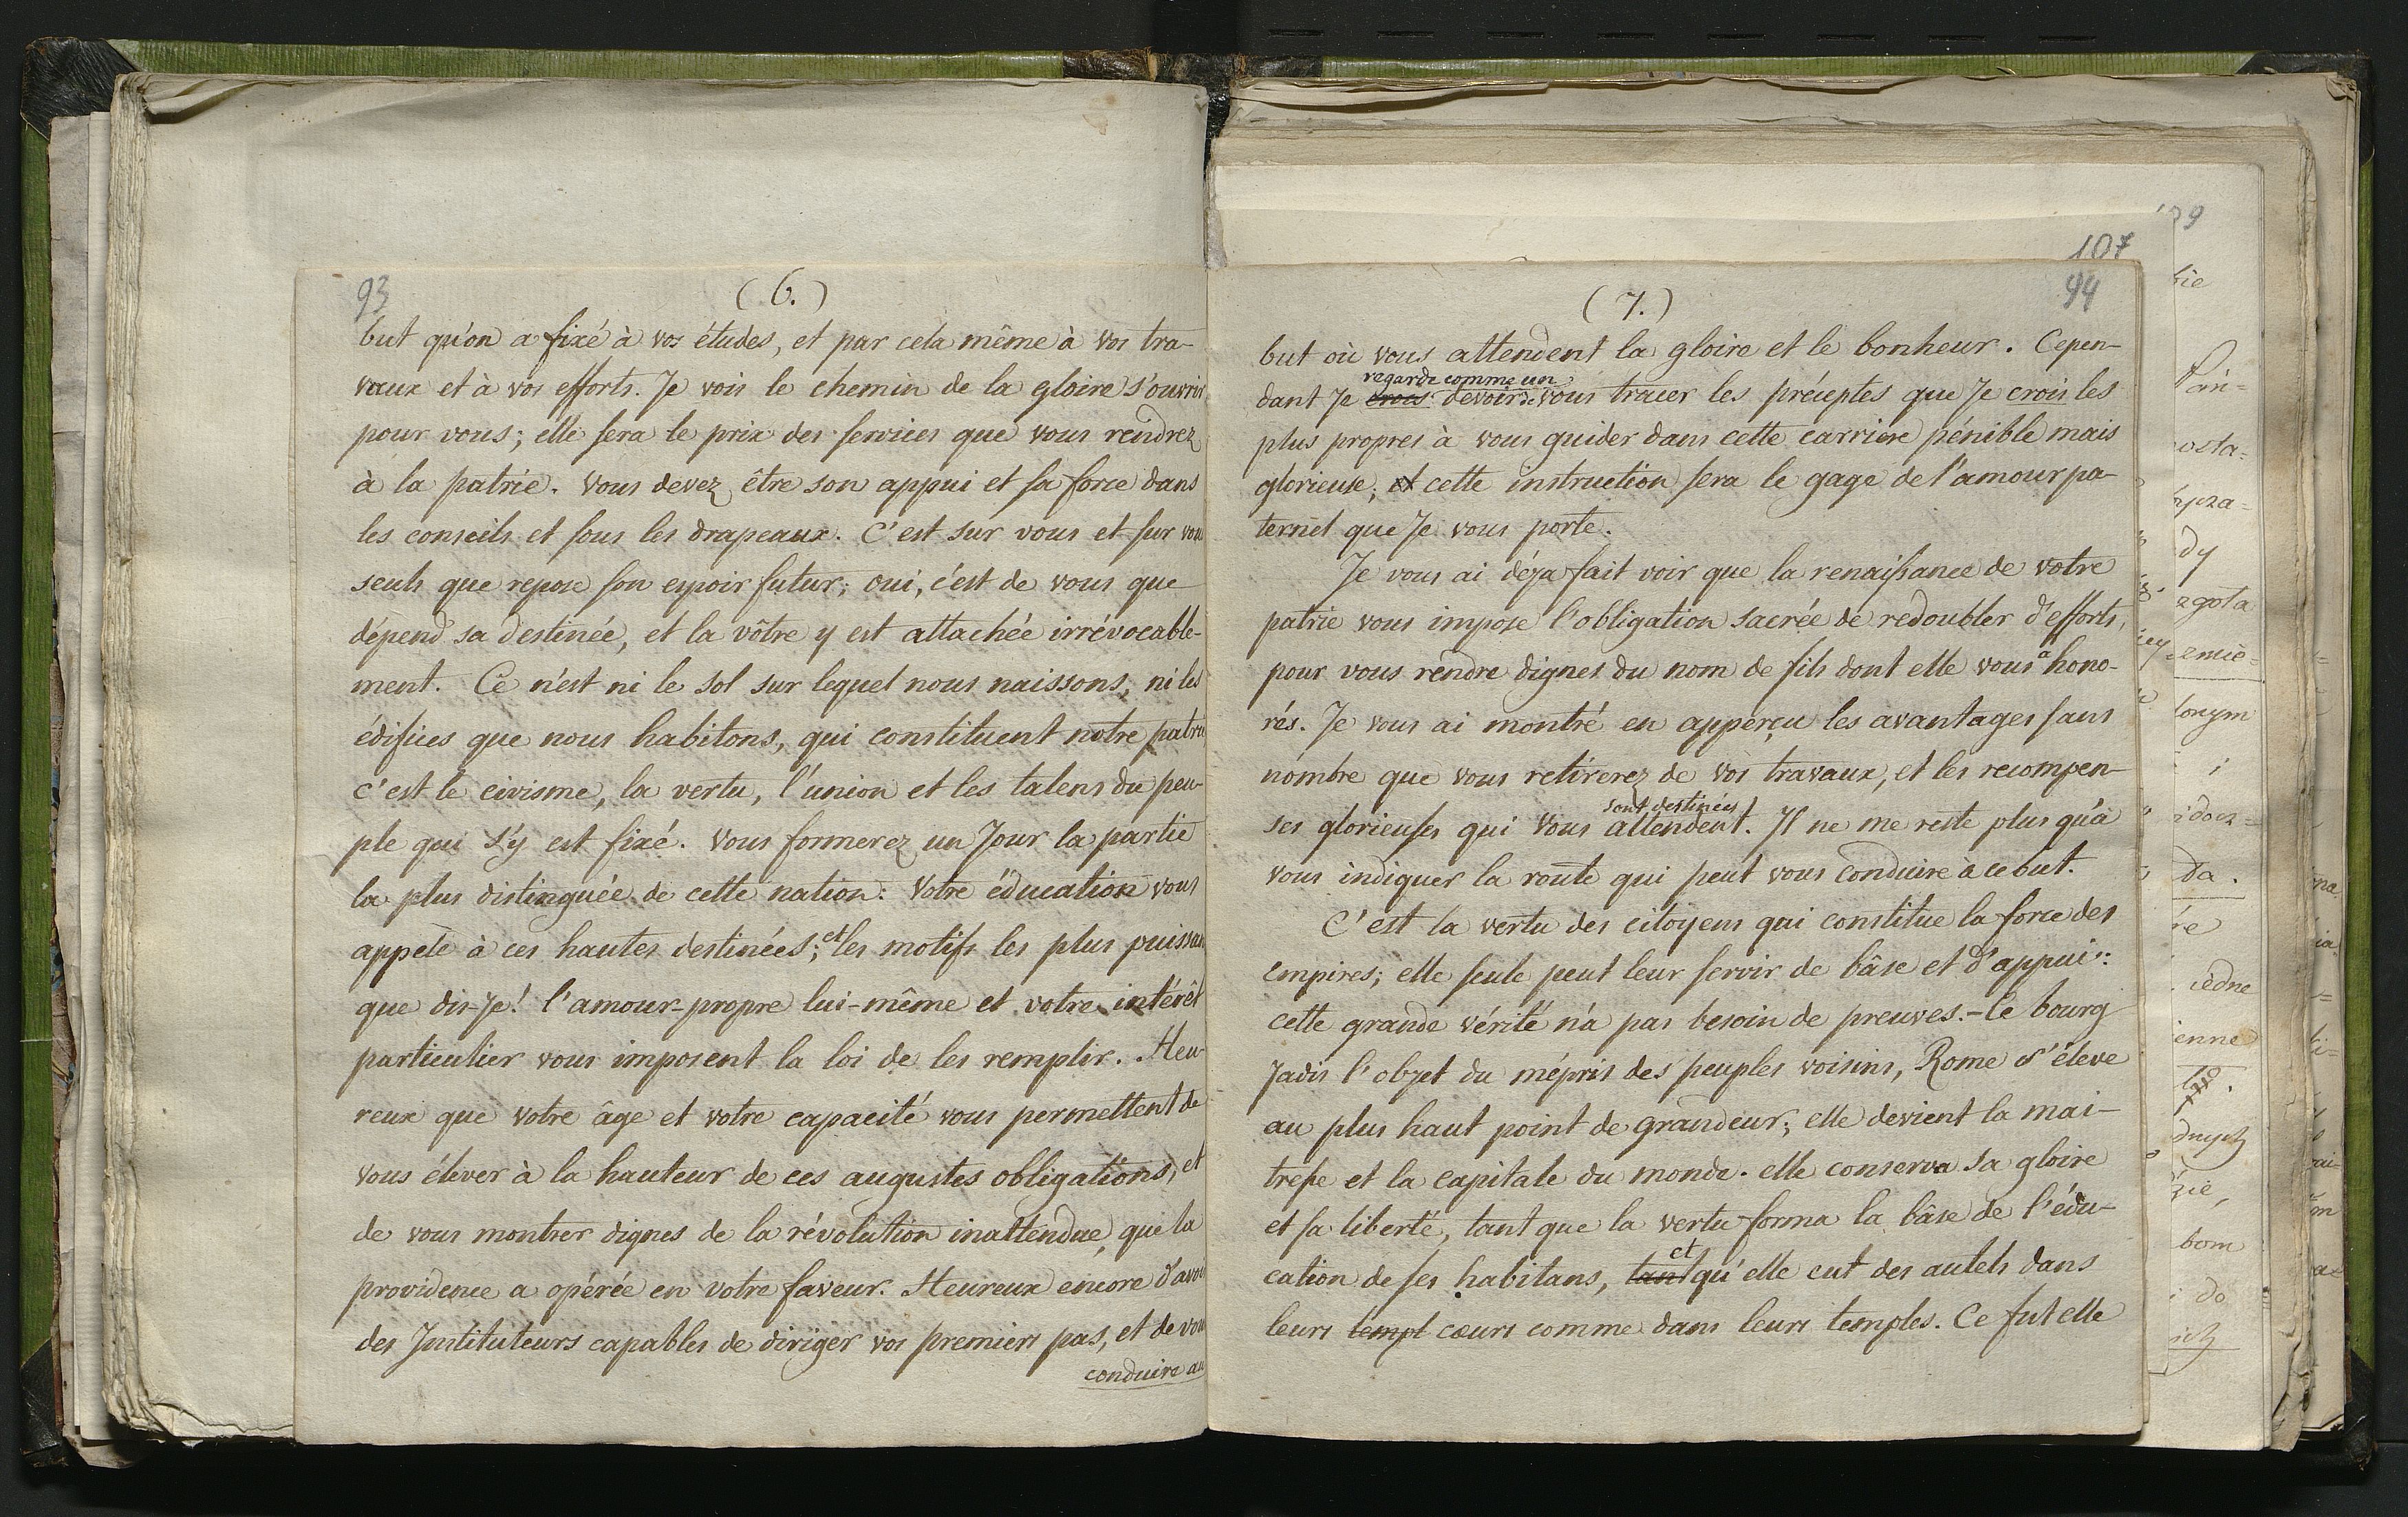 93
(6.)
but qu'on a fixé à vos études, et par cela même à vos tra-
vaux et à vos efforts. Je vois le chemin de la gloire s'ouvrir
pour vous; elle sera le prix des services que vous rendrez
à la patrie. Vous devez être son appui et sa force dans
les conseils et sous les drapeaux. C'est sur vous et sur vous
seuls que repose son espoir futur; oui, c'est de vous que
dépend sa destinée, et la vôtre y est attachée irrévocable-
ment. Ce n'est ni le sol sur lequel nous naissons, ni les
édifices que nous habitons, qui constituent notre patrie
c'est le civisme, la vertu, l'union et les talens du peu-
ple qui s'y est fixé. Vous formerez un Jour la partie
la plus distinguée de cette nation: Votre éducation vous
appele à ces hautes destinées; et les motifs les plus puissan
que dis-Je! l'amour-propre lui-même et votre intérêt
particulier vous imposent la loi de les remplir. Heu-
reux que votre âge et votre capacité vous permettent de
vous élever à la hauteur de ces augustes obligations, et
de vous montrer dignes de la révolution inattendue, que la
providence a opérée en votre faveur. Heureux encore d'avoi
des Instituteurs capables de diriger vos premiers pas, et de vou
conduire au
107
94
(7.)
but où vous attendent la gloire et le bonheur. Cepen-
regarde comme un
dant Je crois devoir de vous tracer les préceptes que Je crois les
plus propres à vous guider dans cette carriere pénible mais
glorieuse; et cette instruction sera le gage de l'amour pa-
ternel que Je vous porte.
Je vous ai déja fait voir que la renaissance de votre
patrie vous impose l'obligation sacrée de redoubler d'efforts,
pour vous rendre dignes du nom de fils dont elle vous a hono-
rés. Je vous ai montré en apperçu les avantages sans
nombre que vous retirerez de vos travaux, et les recompen-
sont destinées
ses glorieuses qui vous attendent. Il ne me reste plus qu'à
vous indiquer la route qui peut vous conduire à ce but.
C'est la vertu des citoyens qui constitue la force des
empires; elle seule peut leur servir de bâse et d'appui:
cette grande vérité n'a pas besoin de preuves. - Ce bourg
Jadis l'objet du mépris des peuples voisins, Rome s'éleve
au plus haut point de grandeur; elle devient la mai-
tresse et la capitale du monde. elle conserva sa gloire
et sa liberté, tant que la vertu forma la bâse de l'édu-
et
cation de ses habitans, tant qu'elle eut des autels dans
leurs templ cœurs comme dans leurs temples. Ce fut elle